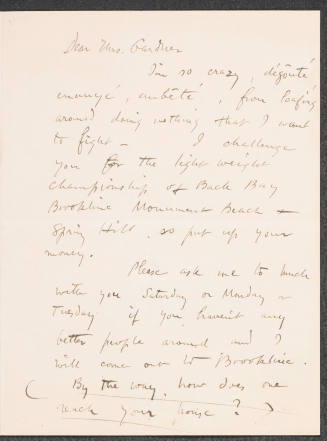 Dear Mrs. Gardner
I'm so crazy, dégouté
ennuyé, embêté, from loafing
around doing nothing that I want
to fight — I challenge
you for the light weight
championship of Back Bay
Brookline Monument Beach —
Spring Hill, so put up your
money.
Please ask me to lunch
with you Saturday or Monday or
Tuesday if you haven't any
better people around and I
will come out to Brookline.
(By the way, how does one
reach your house?)